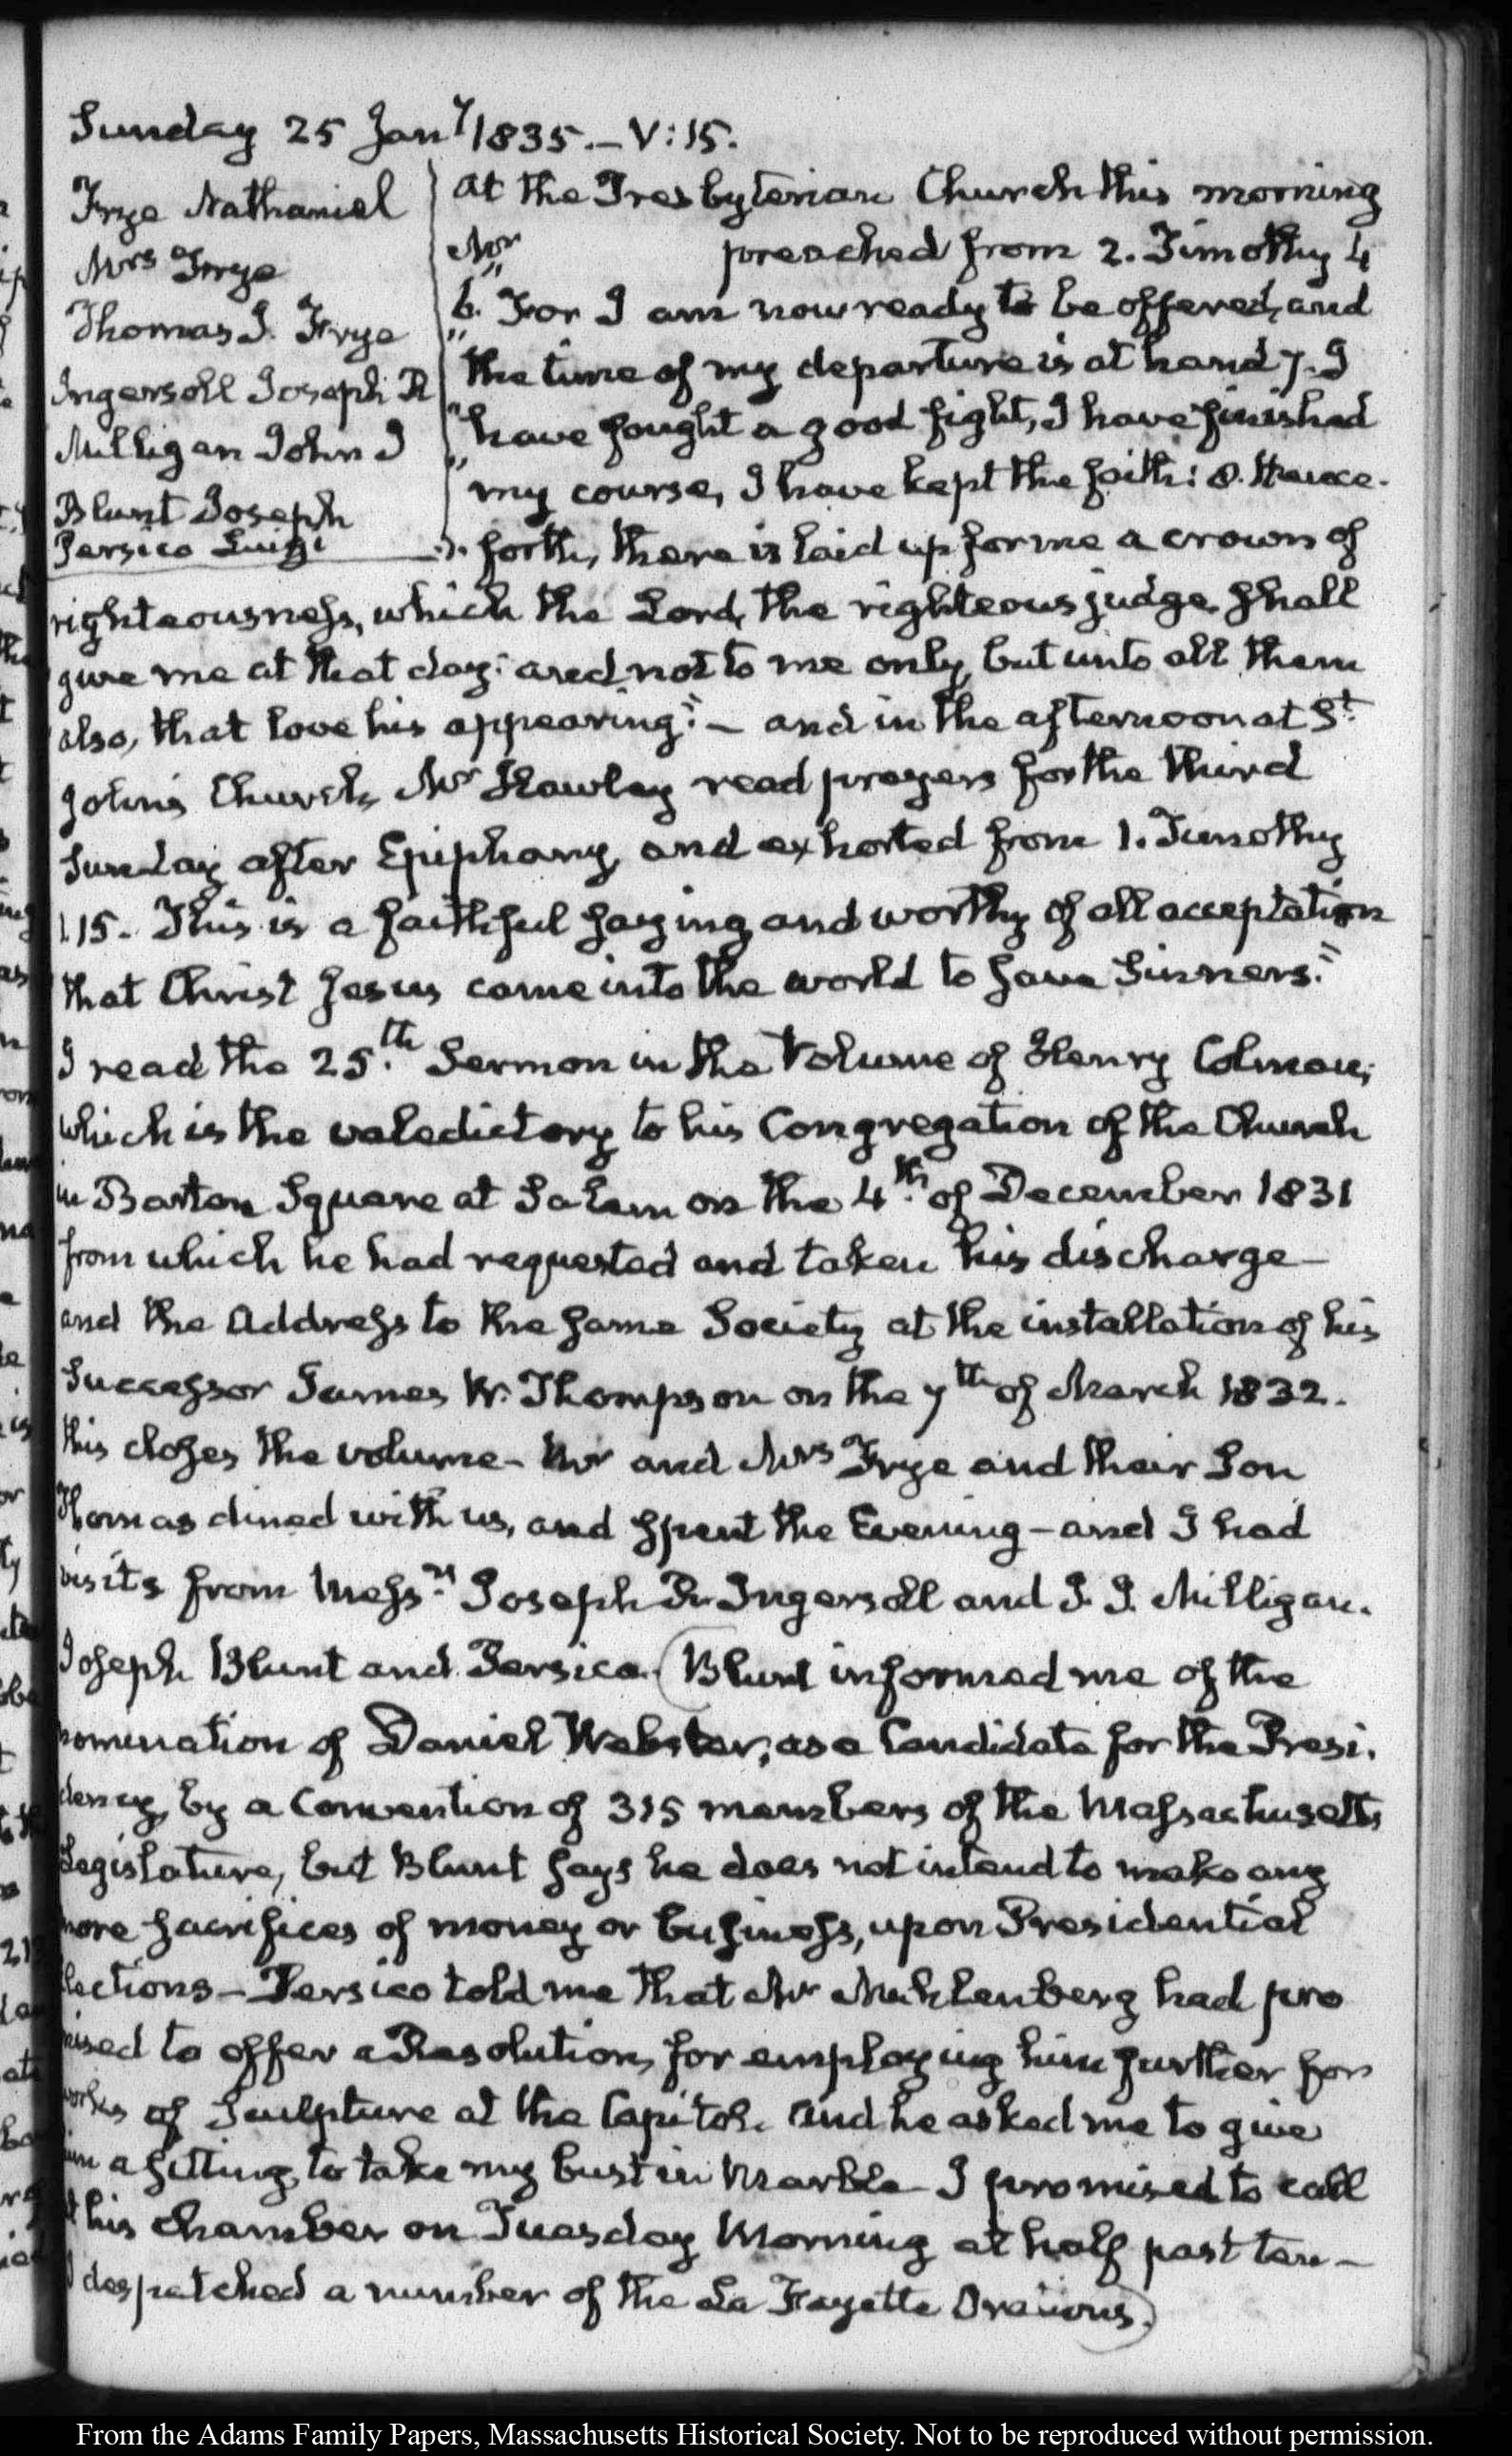 Sunday 25 Jany 1835.— V:15.
Frye Nathaniel
Mrs Frye
Thomas J. Frye
Ingersoll Joseph R
Milligan John J
Blunt Joseph
Persico Luigi
At the Presbyterian Church this morning
Mr preached from 2. Timothy 4
6. For I am now ready to be offered, and
the time of my departure is at hand 7. I
have fought a good fight, I have finished
my course, I have kept the faith: 8. Hence-
forth, there is laid up for me a crown of
righteousness, which the Lord, the righteous judge shall
give me at that day: and not to me only, but unto all them
also, that love his appearing:" — and in the afternoon at St.
John's Church, Mr Hawley read prayers for the third
Sunday after Epiphany, and exhorted from 1. Timothy
1.15. This is a faithful saying and worthy of all acceptation
that Christ Jesus came into the world to save Sinners."
I read the 25th. Sermon in the Volume of Henry Colman;
which is the valedictory to his Congregation of the Church
in Barton Square at Salem on the 4th. of December 1831
from which he had requested and taken his discharge—
and the Address to the same Society at the installation of his
Successor James W. Thompson on the 7th of March 1832.
this closes the volume— Mr and Mrs Frye and their Son
Thomas dined with us, and spent the Evening— and I had
visits from Messrs. Joseph R. Ingersoll and J. J. Milligan.
Joseph Blunt and Persico. (Blunt informed me of the
nomination of Daniel Webster, as a Candidate for the Presi-
dency, by a Convention of 315 members of the Massachusetts
Legislature, but Blunt says he does not intend to make any
more sacrifices of money or business, upon Presidential
elections— Persico told me that Mr Muhlenberg had pro
mised to offer a Resolution, for employing him further for
works of Sculpture at the Capitol. And he asked me to give
him a sitting, to take my bust in Marble— I promised to call
at his chamber on Tuesday Morning at half past ten—
I despatched a number of the La Fayette Orations.)
From the Adams Family Papers, Massachusetts Historical Society. Not to be reproduced without permission.